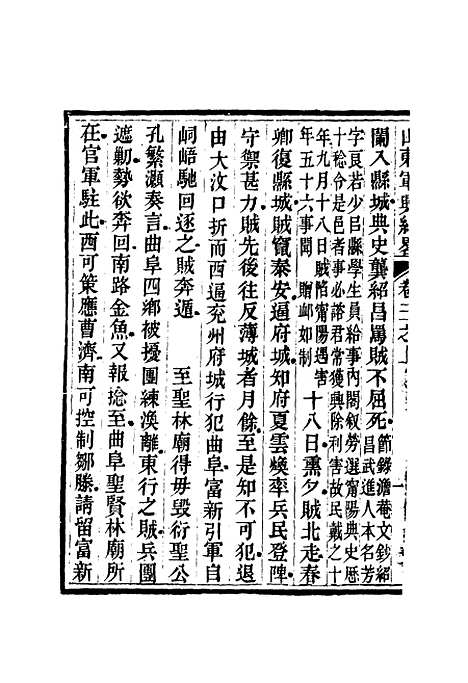 山東軍興紀畧 卷二之上
闌入縣城典史龔紹昌罵賊不屈死節錄澹菴文鈔紹昌武進人本名芳
字艮若少呂縣學生員給事內閣叙勞選甯陽典史歷
十稔令是邑者事必諮君常獲興除利害故民戴之十
年九月十八日賊陷甯陽遇害
年五十六事聞 贈卹如制十八日薰夕賊北走春
卿復縣城賊竄泰安逼府城知府夏雲煥率兵民登陴
守禦甚力賊先後往反薄城者月餘至是知不可犯退
由大汶口折而西逼兖州府城行犯曲阜富新引軍自
峒峿馳回逐之賊奔遁 至聖林廟得毋毀衍聖公
孔繁灝奏言曲阜四鄉被擾團練渙離東行之賊兵團
遮勦勢欲奔回南路金魚又報捻至曲阜聖賢林廟所
在官軍駐此西可策應曹濟南可控制鄒滕請留富新